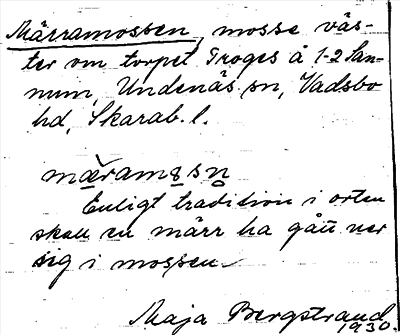 Märramossen, mosse väs-
ter om torpet Troges å 1-2 San-
num, Undenäs sn, Vadsbo
hd, Skarab. l.
mæramɑsn̥
Enligt tradition i orten
skall en märr ha gått ner
sig i mossen.
Maja Bergstrand
1930.